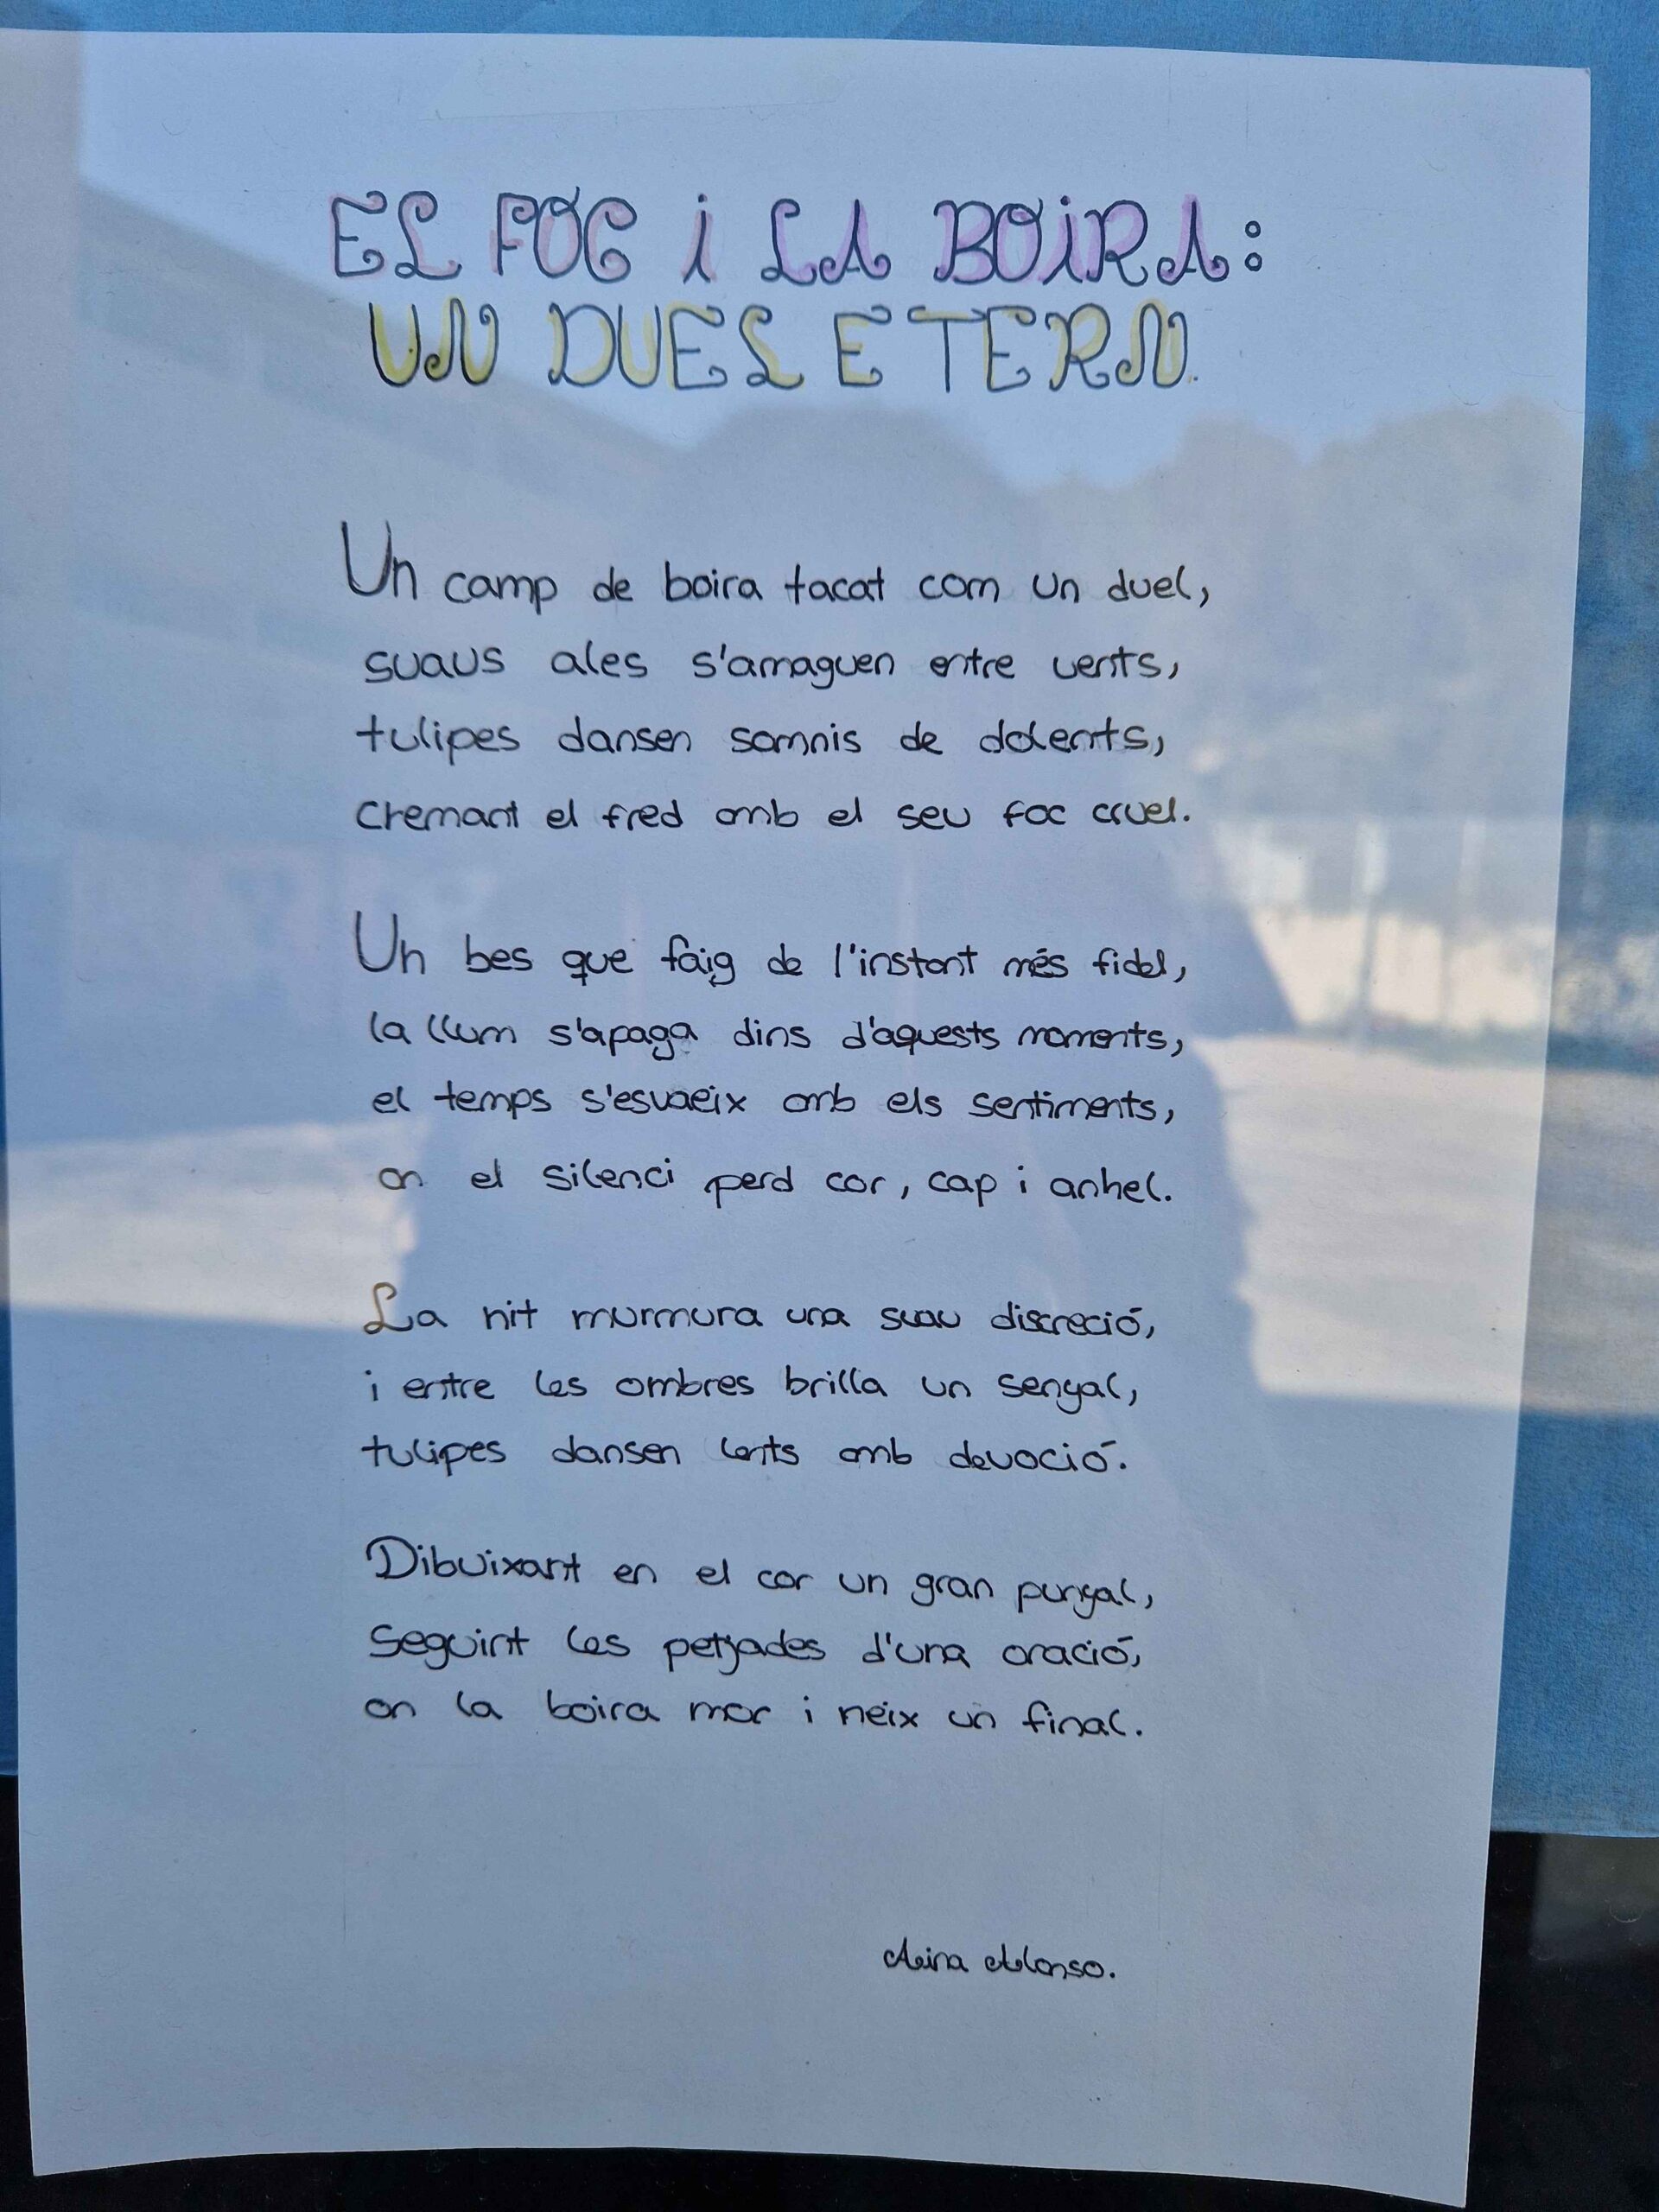 EL FOC i LA BOiRA:
UN DUEL ETERN.
Un camp de boira tacat com un duel,
suaus ales s'amaguen entre vents,
tulipes dansen somnis de dolents,
cremant el fred amb el seu foc cruel.
Un bes que faig de l'instant més fidel,
la llum s'apaga dins d'aquests moments,
el temps s'esvaeix amb els sentiments,
on el silenci perd cor, cap i anhel.
La nit murmura una suau discreció,
i entre les ombres brilla un senyal,
tulipes dansen lents amb devoció.
Dibuixant en el cor un gran punyal,
Seguint les petjades d'una oració,
on la boira mor i neix un final.
Aina Alonso.